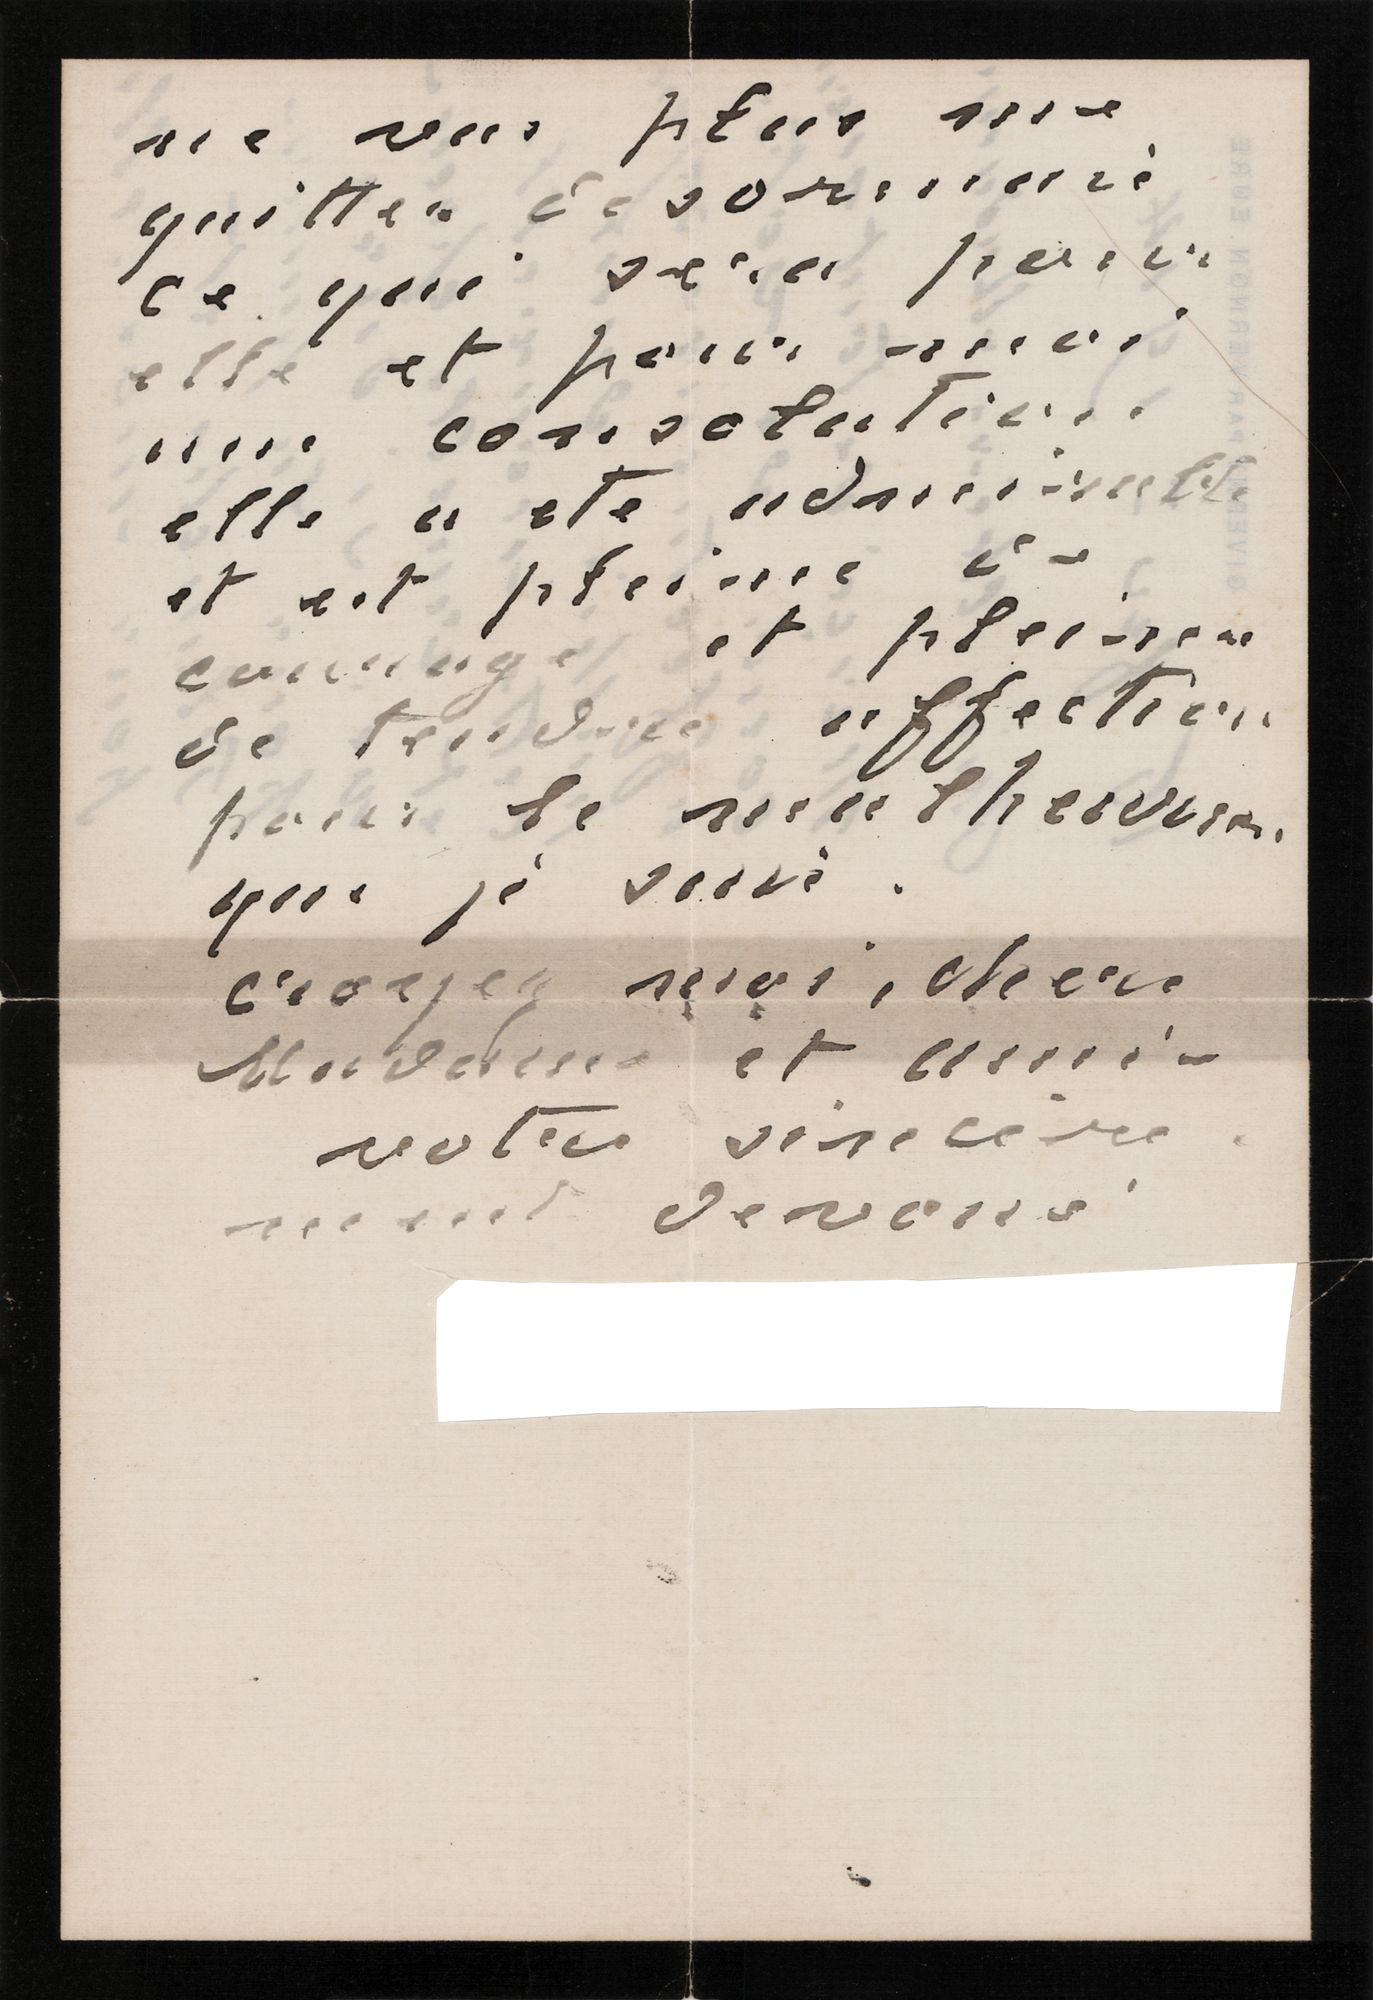 ne veu plus me
quitter desormais
ce qui sera pour
elle et pour moi
une consolation
elle a ete admirable
et est pleine de
courage et pleine
de tendre affection
pour le malheureux
que je suis.
croyez moi, chere
Madame et amie
votre sincère.
ment devoué